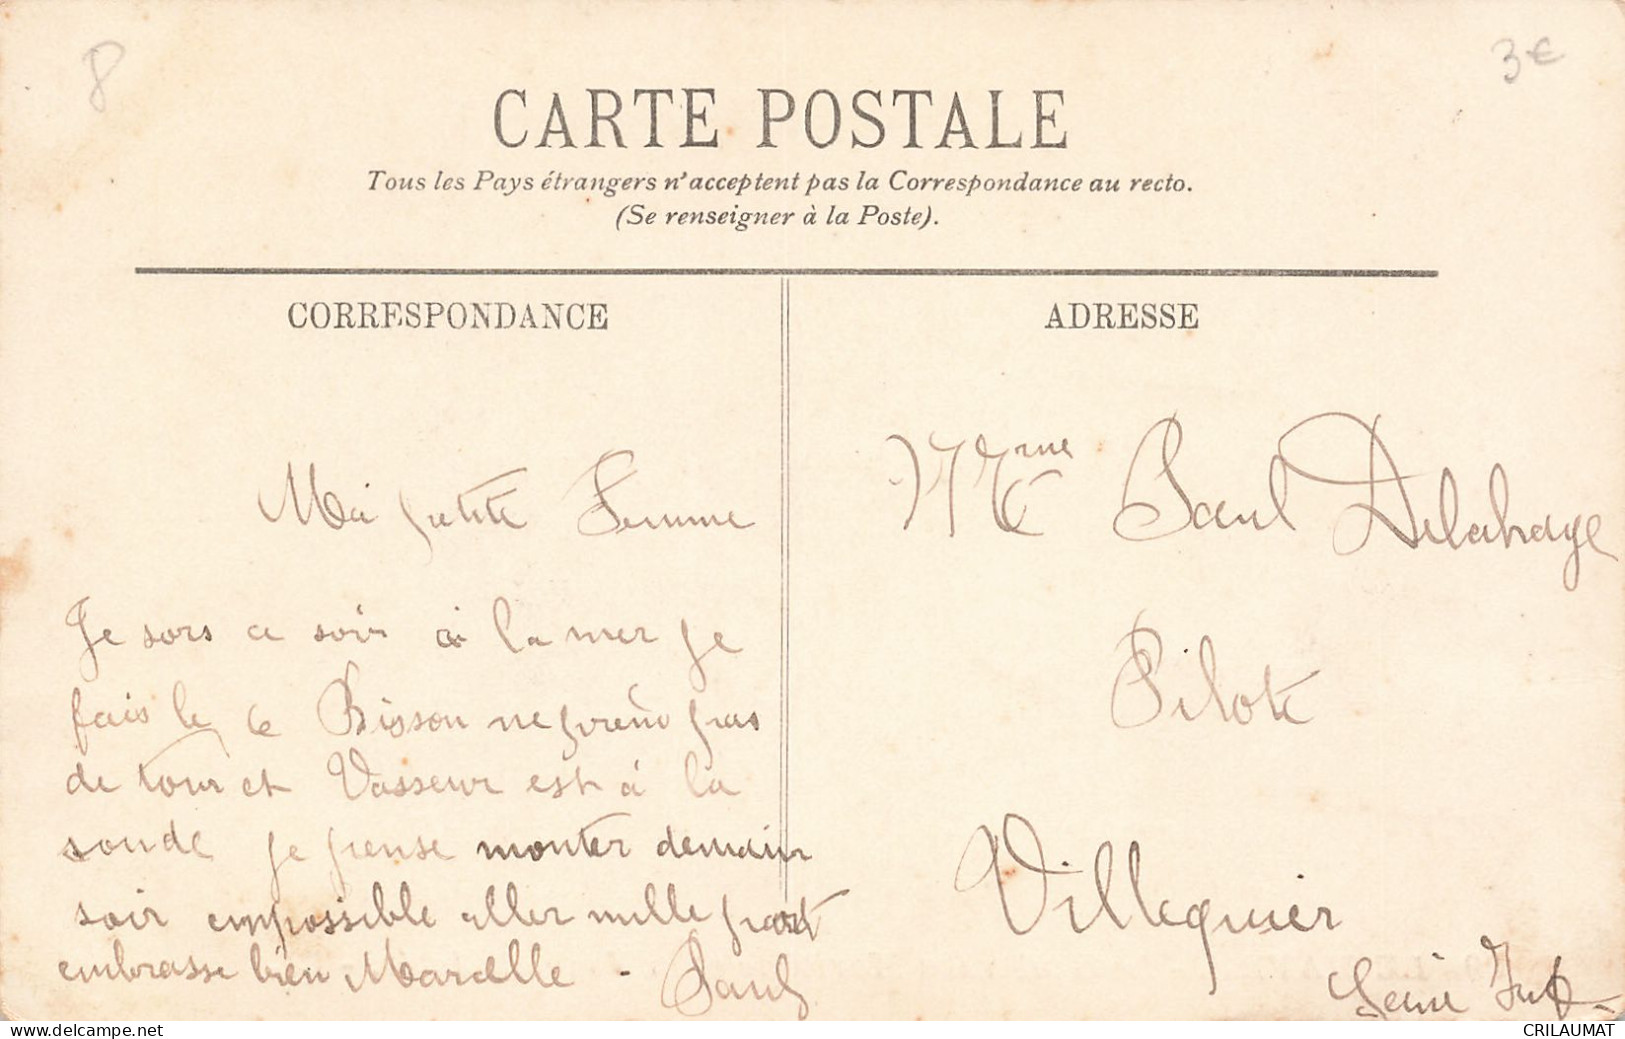 8
3€
CARTE POSTALE
Tous les Pays étrangers n'acceptent pas la Correspondance au recto.
(Se renseigner à la Poste).
CORRESPONDANCE
Ma petite Femme
Je sors ce soir à la mer je
fais le 6e Bisson ne prend pas
de tour et Vasseur est à la
sonde je pense monter demain
soir empossible aller mille part
embrasse bien Marcelle - Paul
ADRESSE
Mme Paul Delahaye
Pilote
Villequier
Seine Inf
www.delcampe.net
CRILAUMAT